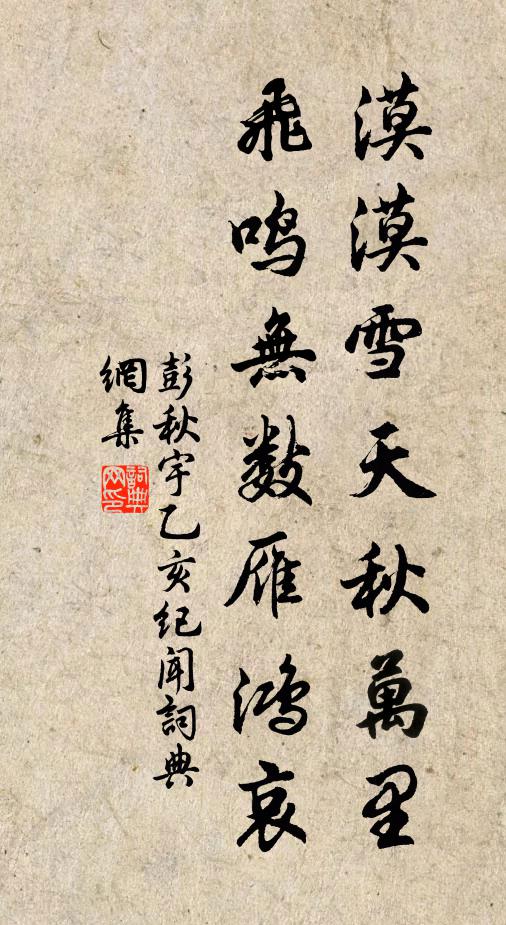 漠漠雪天秋萬里
飛鳴無數雁鴻哀
彭秋宇乙亥纪闻詞典
網集
詞典网印